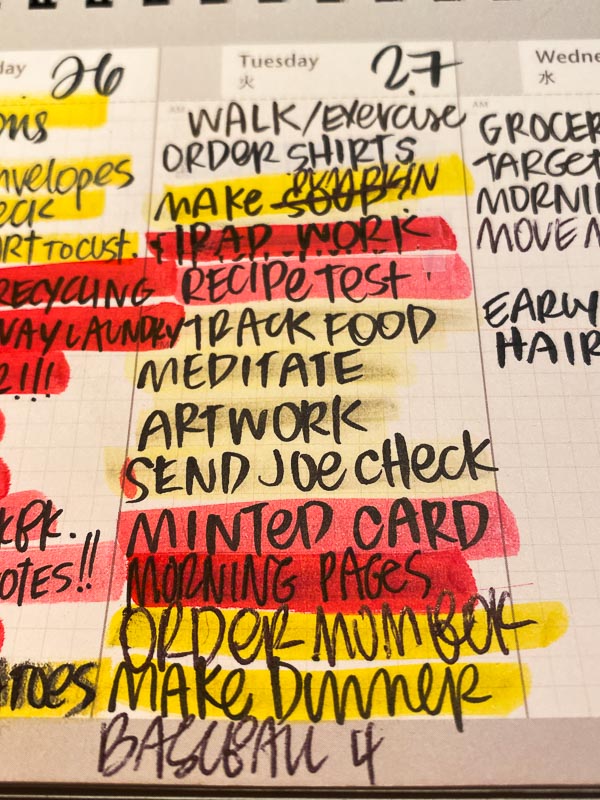 day 26
ons
nvelopes
eck
RT TO CUST.
RECYCLING
WAY LAUNDRY
!!!
KBK.
OTES!!
TOES
Tuesday 27
火
AM
WALK/Exercise
ORDER SHIRTS
PUMPKIN
MAKE SOUP
IPAD WORK
RECIPE TEST
TRACK FOOD
MEDITATE
ARTWORK
SEND JOE CHECK
MINTED CARD
MORNING PAGES
ORDER MOM BOK
MAKE DINNER
BASEBALL 4
Wedne
水
AM
GROCER
TARGET
MORNI
MOVE
EARLY
HAIR